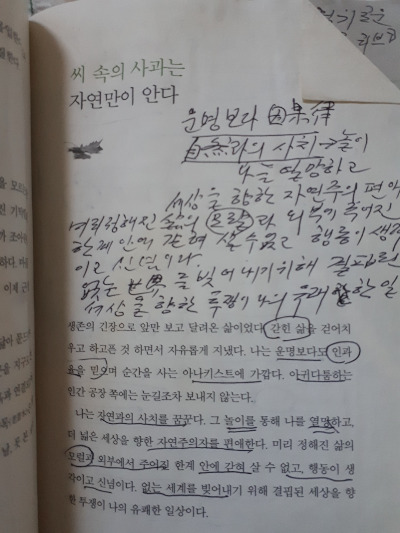 씨 속의 사과는
자연만이 안다
운명보다 因果律
自然과의 사치 → 놀이
나를 열망하고
세상을 향한 자연주의 편애
미리 정해진 삶의 모럴과 외부에 주어진
한계 안에 갇혀 살 수 없고 행동이 생각
이고 신념이다.
없는 世界를 빚어내기 위해 결핍된
세상을 향한 투쟁이 나의 유쾌한 일
생존의 긴장으로 앞만 보고 달려온 삶이었다. 갇힌 삶을 걷어치
우고 하고픈 것 하면서 자유롭게 지냈다. 나는 운명보다도 인과
율을 믿으며 순간을 사는 아나키스트에 가깝다. 아귀다툼하는
인간 공장 쪽에는 눈길조차 보내지 않는다.
나는 자연과의 사치를 꿈꾼다. 그 놀이를 통해 나를 열망하고,
더 넓은 세상을 향한 자연주의자를 편애한다. 미리 정해진 삶의
모럴과 외부에서 주어진 한계 안에 갇혀 살 수 없고, 행동이 생
각이고 신념이다. 없는 세계를 빚어내기 위해 결핍된 세상을 향
한 투쟁이 나의 유쾌한 일상이다.